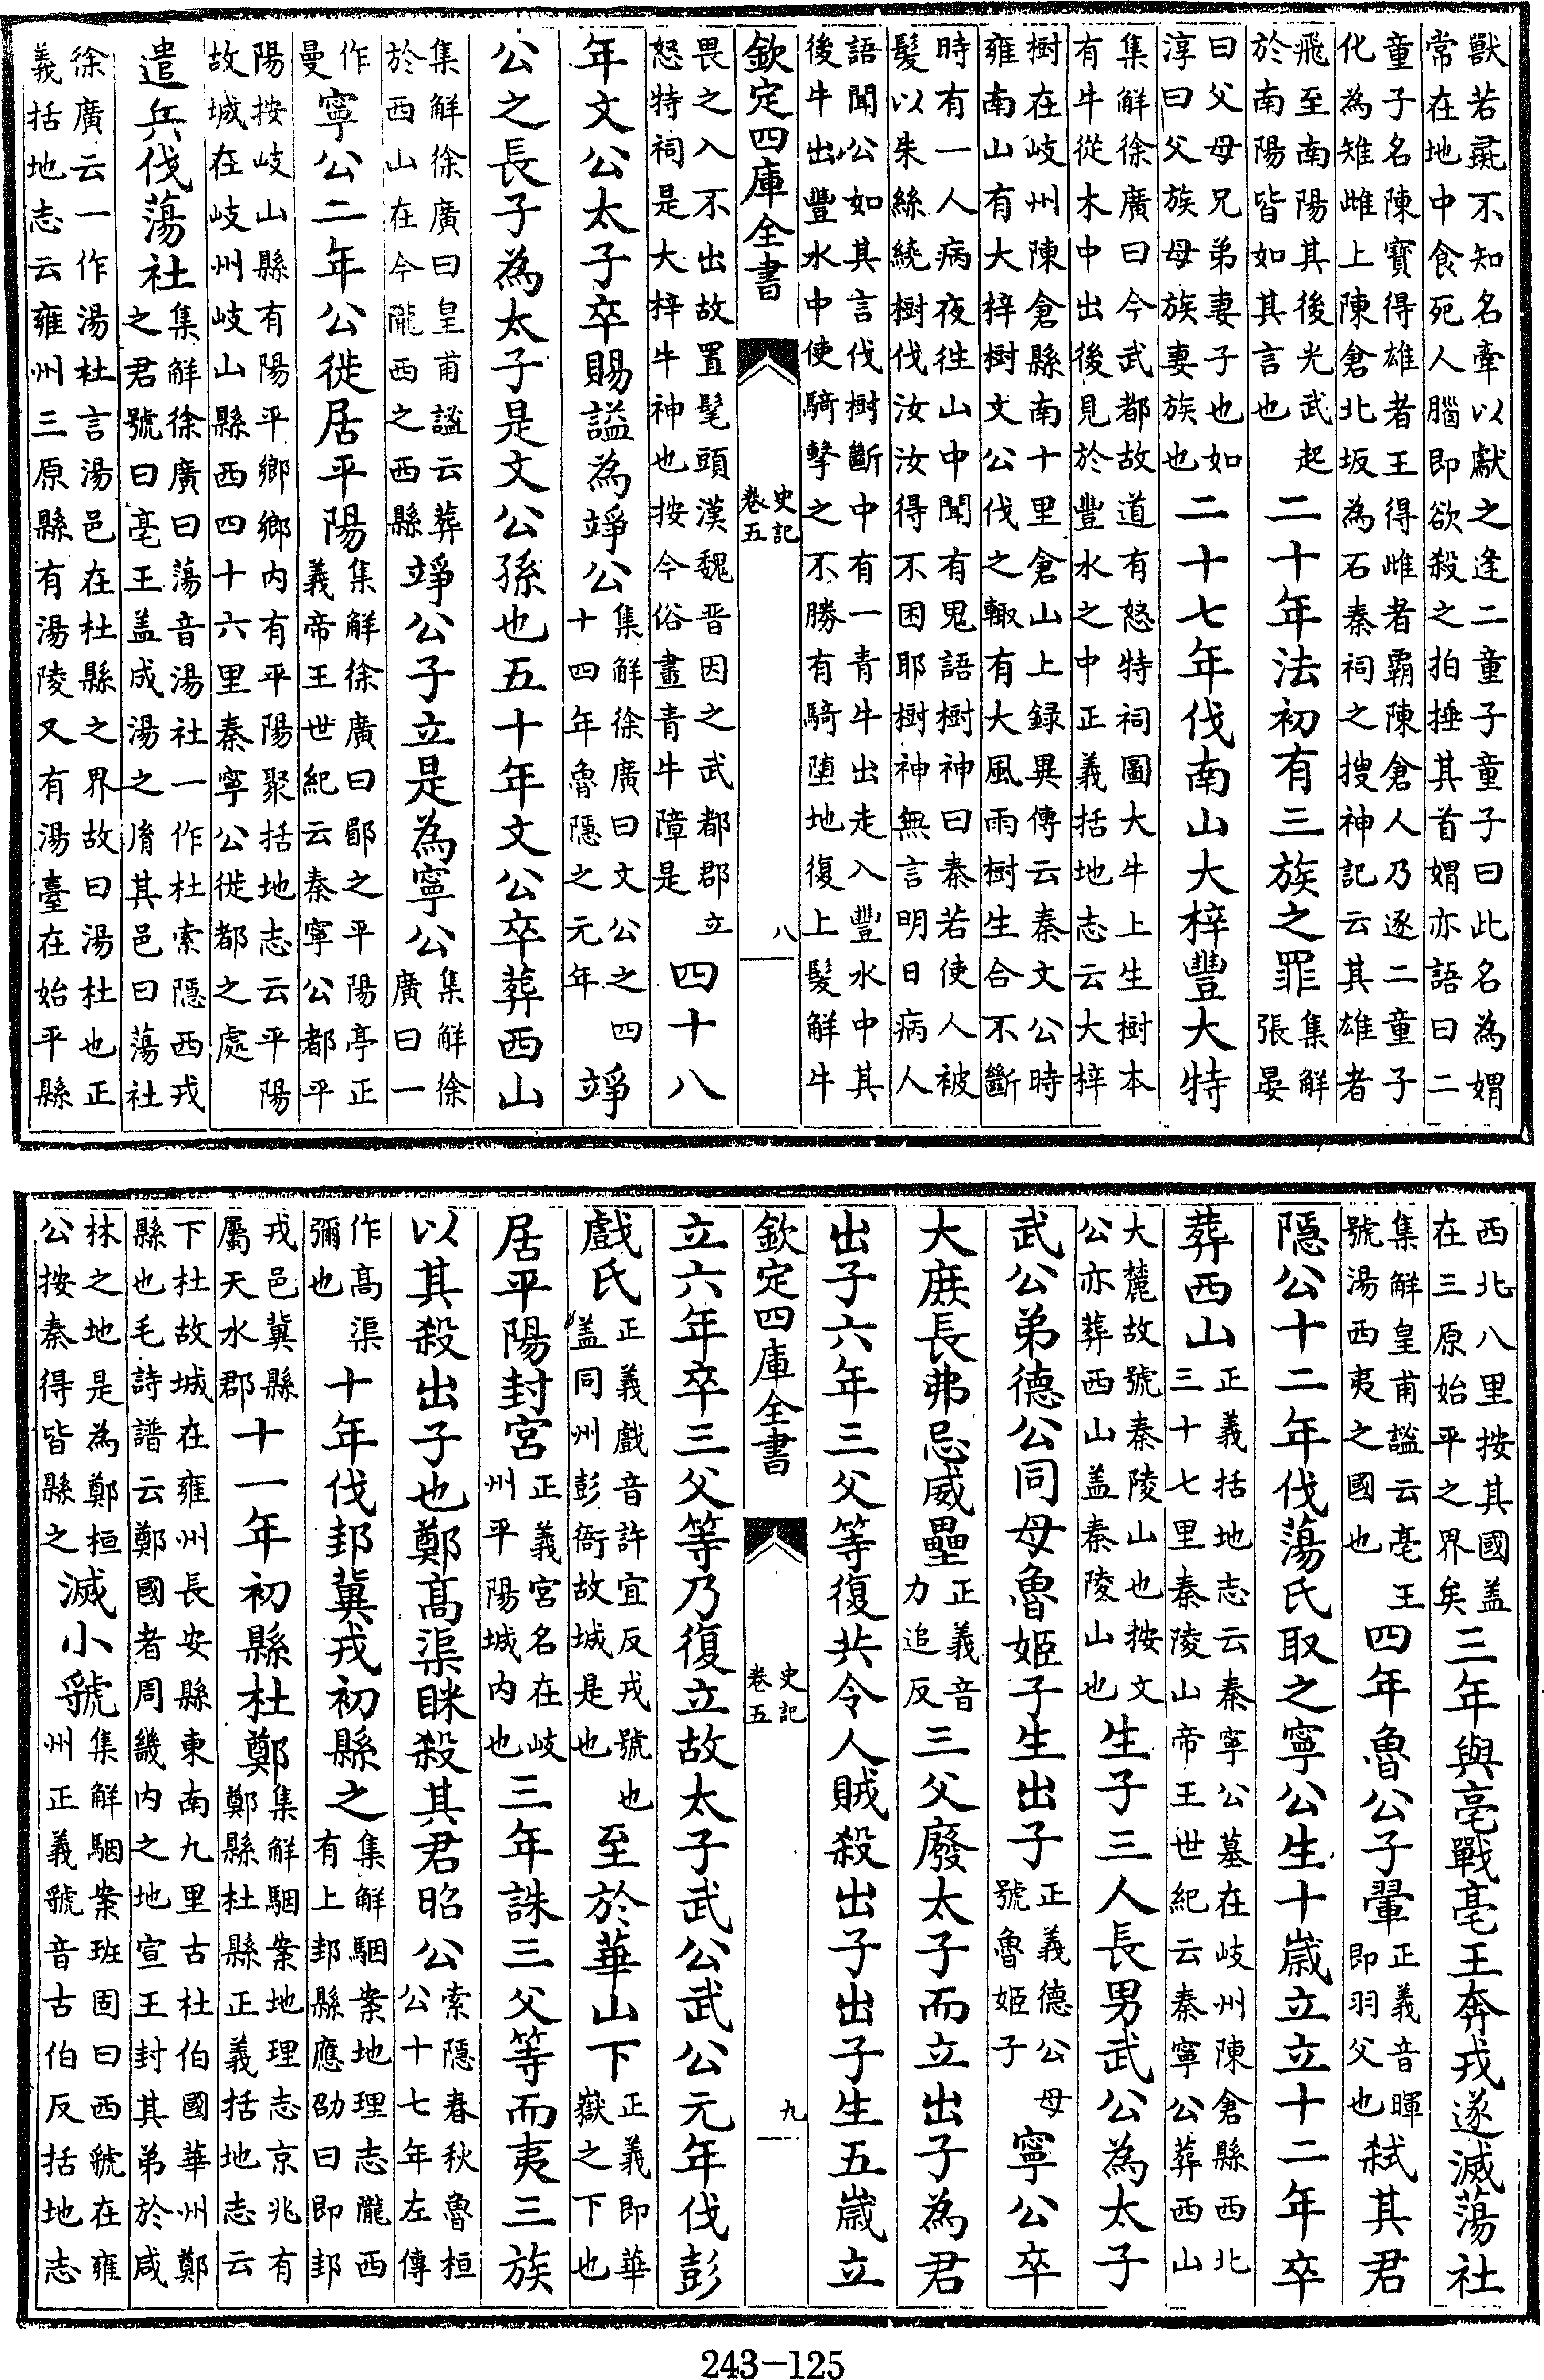 獸若彘不知名牽以獻之逢二童子童子曰此名為媦
常在地中食死人腦即欲殺之拍捶其首媦亦語曰二
童子名陳寶得雄者王得雌者霸陳倉人乃逐二童子
化為雉雌上陳倉北坂為石秦祠之搜神記云其雄者
飛至南陽其後光武起於南陽皆如其言也二十年法初有三族之罪集解張晏
曰父母兄弟妻子也如淳曰父族母族妻族也二十七年伐南山大梓豐大特
集解徐廣曰今武都故道有怒特祠圖大牛上生樹本
有牛從木中出後見於豐水之中正義括地志云大梓
樹在岐州陳倉縣南十里倉山上録異傳云秦文公時
雍南山有大梓樹文公伐之輙有大風雨樹生合不斷
時有一人病夜徃山中聞有鬼語樹神曰秦若使人被
髮以朱絲繞樹伐汝汝得不困耶樹神無言明日病人
語聞公如其言伐樹斷中有一青牛出走入豐水中其
後牛出豐水中使騎擊之不勝有騎墮地復上髮解牛
欽定四庫全書 史記卷五 八
畏之入不出故置髦頭漢魏晋因之武都郡立怒特祠是大梓牛神也按今俗畫青牛障是四十八
年文公太子卒賜謚為竫公集解徐廣曰文公之四十四年魯隱之元年竫
公之長子為太子是文公孫也五十年文公卒葬西山
集解徐廣曰皇甫謐云葬於西山在今隴西之西縣竫公子立是為寧公集解徐廣曰一
作曼寧公二年公徙居平陽集解徐廣曰郿之平陽亭正義帝王世紀云秦寧公都平
陽按岐山縣有陽平鄉鄉内有平陽聚括地志云平陽
故城在岐州岐山縣西四十六里秦寧公徙都之處
遣兵伐蕩社集解徐廣曰蕩音湯社一作杜索隱西戎之君號曰亳王盖成湯之胤其邑曰蕩社
徐廣云一作湯杜言湯邑在杜縣之界故曰湯杜也正
義括地志云雍州三原縣有湯陵又有湯臺在始平縣
西北八里按其國盖在三原始平之界矣三年與亳戰亳王奔戎遂滅蕩社
集解皇甫謐云亳王號湯西夷之國也四年魯公子翬正義音暉即羽父也弑其君
隱公十二年伐蕩氏取之寧公生十嵗立立十二年卒
葬西山正義括地志云秦寧公墓在岐州陳倉縣西北三十七里秦陵山帝王世紀云秦寧公葬西山
大麓故號秦陵山也按文公亦葬西山盖秦陵山也生子三人長男武公為太子
武公弟德公同母魯姬子生出子正義德公母號魯姬子寧公卒
大庻長弗忌威壘正義音力追反三父廢太子而立出子為君
出子六年三父等復共令人賊殺出子出子生五嵗立
欽定四庫全書 史記卷五 九
立六年卒三父等乃復立故太子武公武公元年伐彭
戲氏正義戲音許宜反戎號也盖同州彭衙故城是也至於華山下正義即華嶽之下也
居平陽封宮正義宮名在岐州平陽城内也三年誅三父等而夷三族
以其殺出子也鄭髙渠眯殺其君昭公索隱春秋魯桓公十七年左傳
作髙渠彌也十年伐邽冀戎初縣之集解駰案地理志隴西有上邽縣應劭曰即邽
戎邑冀縣屬天水郡十一年初縣杜鄭集解駰案地理志京兆有鄭縣杜縣正義括地志云
下杜故城在雍州長安縣東南九里古杜伯國華州鄭
縣也毛詩譜云鄭國者周畿内之地宣王封其弟於咸
林之地是為鄭桓公按秦得皆縣之滅小虢集解駰案班固曰西虢在雍州正義虢音古伯反括地志
243—125